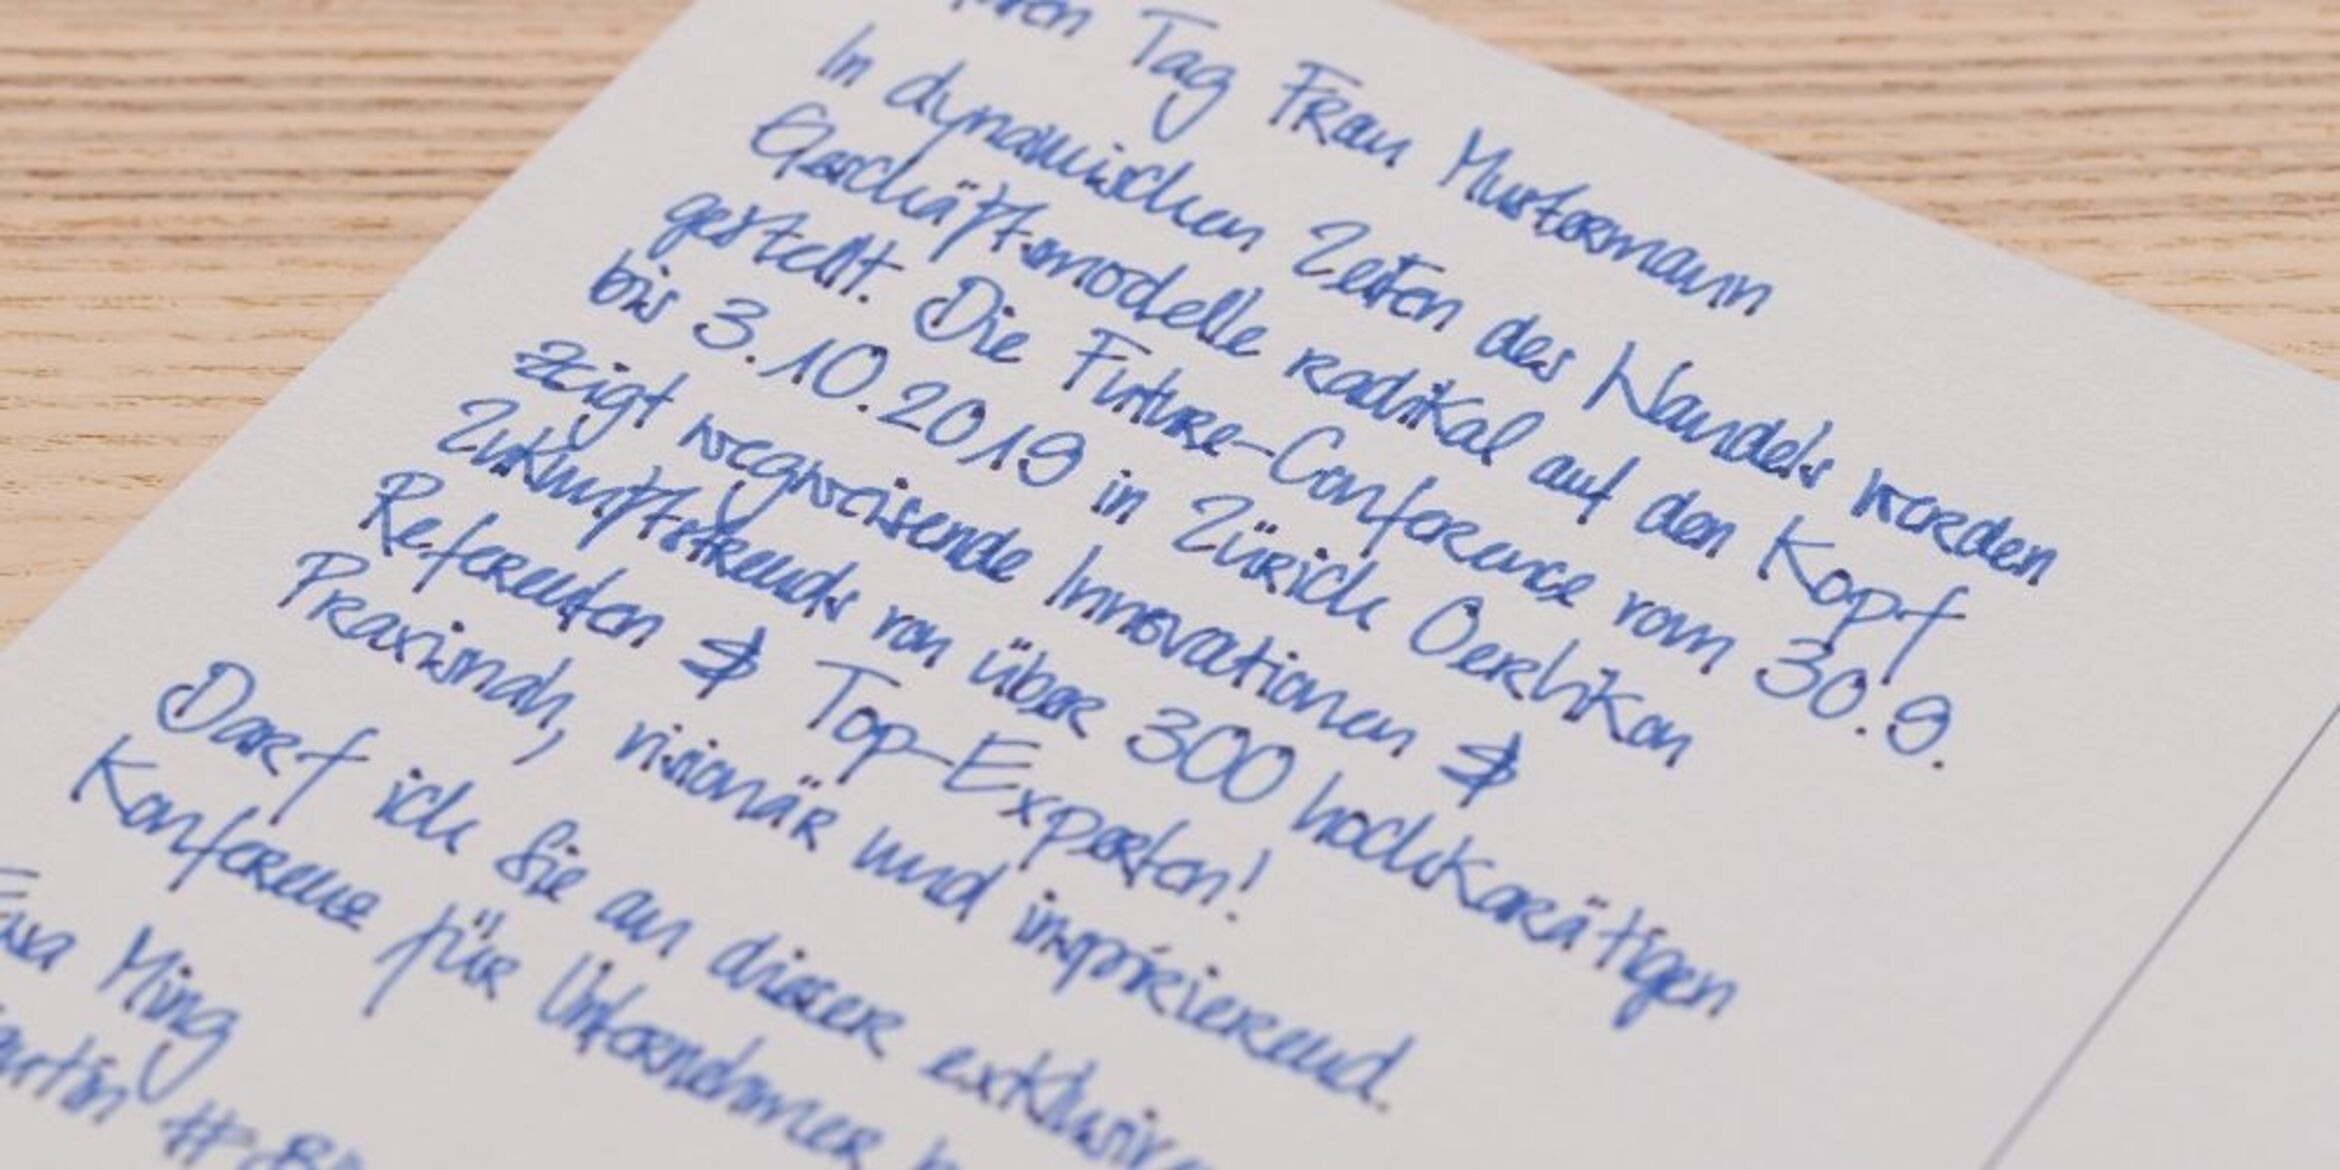 Tag Frau Mustermann
In dynamischen Zeiten des Wandels werden
Geschäftsmodelle radikal auf den Kopf
gestellt. Die Future-Conference vom 30.9.
bis 3.10.2019 in Zürich Oerlikon
zeigt wegweisende Innovationen &
Zukunftstrends von über 300 hochkarätigen
Referenten & Top-Experten!
Praxisnah, visionär und inspirierend.
Darf ich Sie an dieser
Konferenz für Unternehmer
Ming